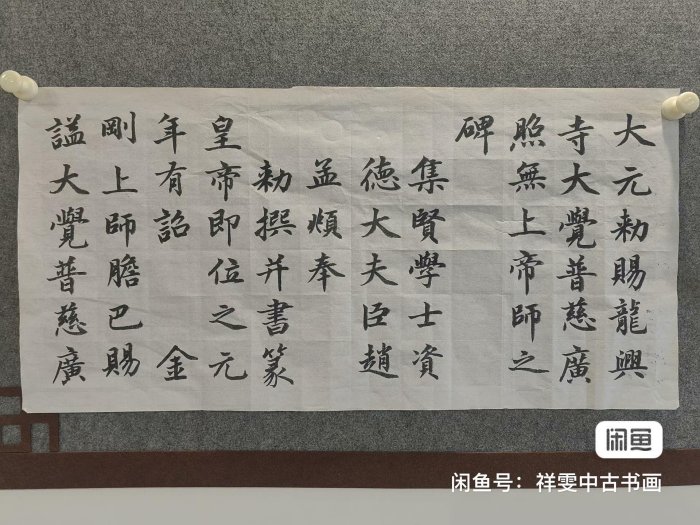 大元勅賜龍興
寺大覺普慈廣
照無上帝師之
碑
集賢學士資
德大夫臣趙
孟頫奉
勅撰并書篆
皇帝即位之元
年有詔金
剛上師膽巴賜
謚大覺普慈廣
闲鱼
闲鱼号：祥雯中古书画